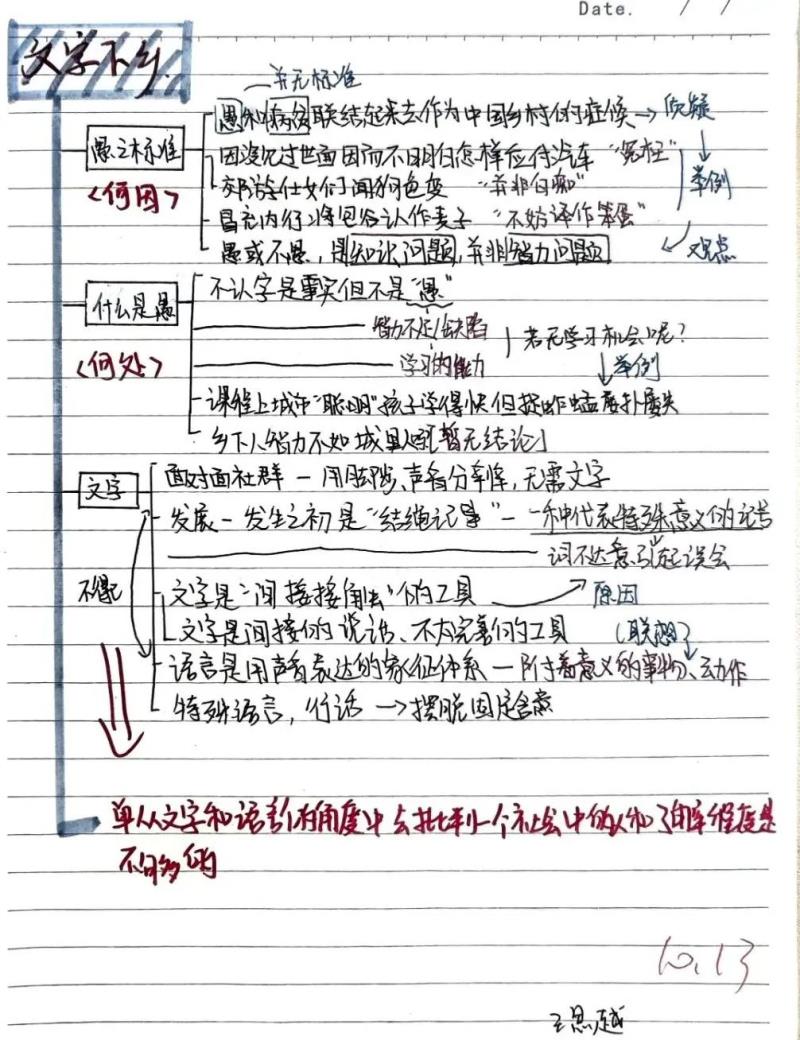 Date. / /
文字下乡
并无标准
愚之标准
<何因>
愚和病贫联结起来去作为中国乡村的症候→质疑
因没见过世面因而不明白怎样应付汽车 "冤枉"
郊游仕女们闻狗色变 "并非白痴"
举例
冒充内行将包谷认作麦子 "不妨译作笨蛋"
愚或不愚,是知识问题,并非智力问题
观点
什么是愚
<何处>
不认字是事实但不是"愚"
智力不足/缺陷
若无学习机会呢?
学习的能力
举例
课程上城市"聪明"孩子学得快但捉蚱蜢屡扑屡失
乡下人智力不如城里人[暂无结论]
文字
面对面社群-用脚步、声音分辨,无需文字
发展-发生之初是"结绳记事"-一种代表特殊意义的记号
词不达意引起误会
文字是"间接接触"的工具
原因
文字是间接的说话、不太完善的工具
(联想)
语言是用声音表达的象征体系-附着意义的事物、动作
特殊语言,行话→摆脱固定含意
单从文字和语言的角度中去批判一个社会中的人和了解程度是
不够的
10.13
王思越